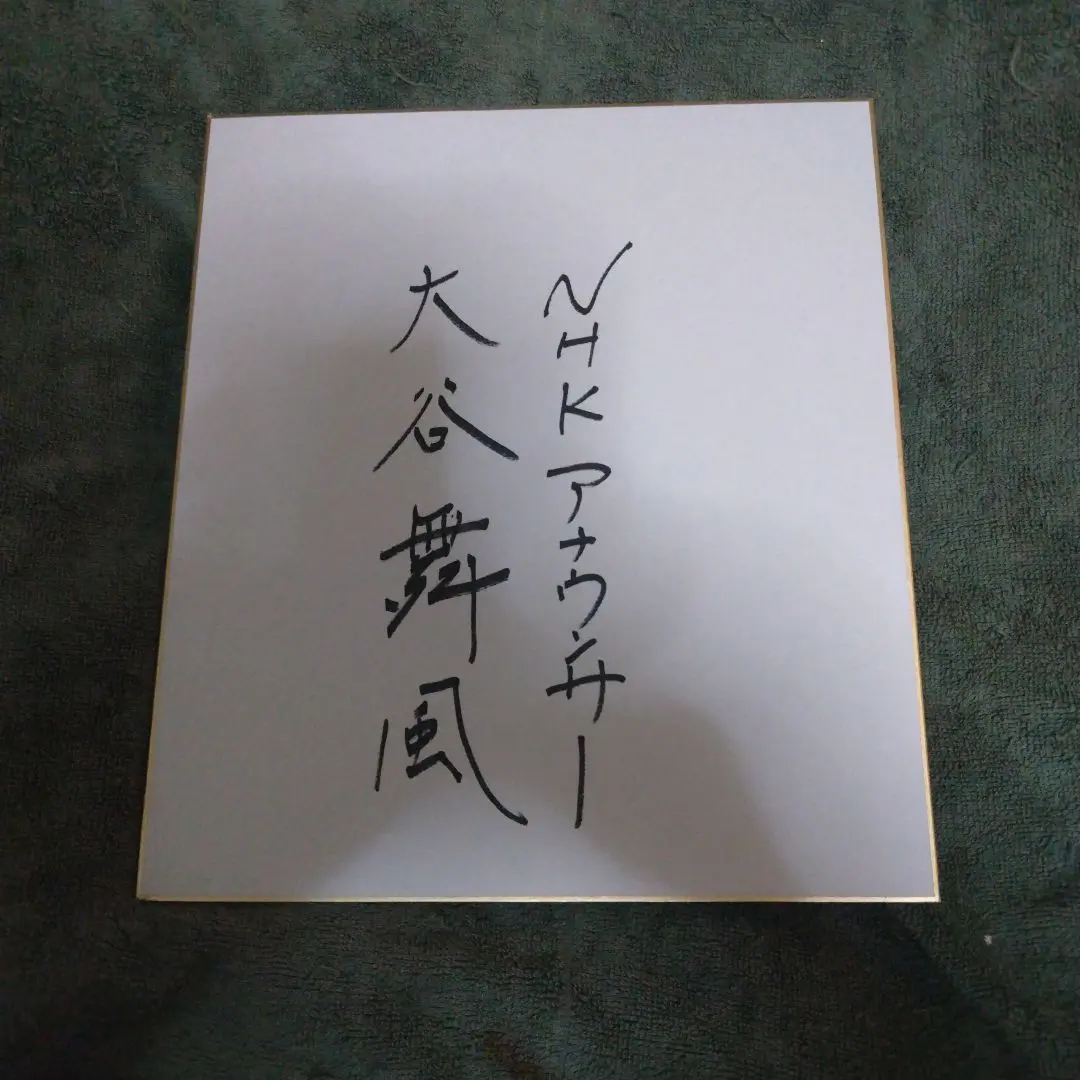 NHKアナウンサー
大谷舞風